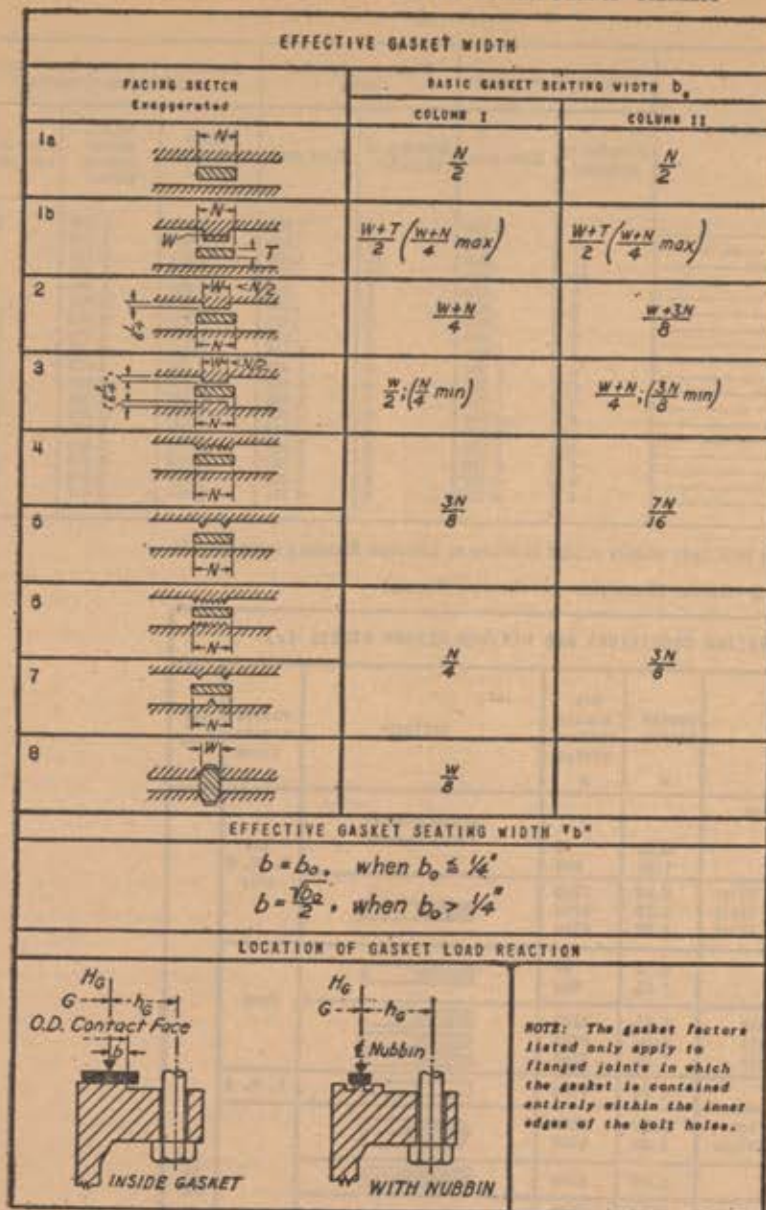 EFFECTIVE GASKET WIDTH
FACING SKETCH
Exaggerated
BASIC GASKET SEATING WIDTH b₀
COLUMN I
COLUMN II
1a
N
N/2
N/2
1b
N
W
T
W+T/2 (W+N/4 max)
W+T/2 (W+N/4 max)
2
W <N/2
N
W+N/4
W+3N/8
3
W <N/2
N
W/2; (N/4 min)
W+N/4; (3N/8 min)
4
N
3N/8
7N/16
5
N
6
N
N/4
3N/8
7
N
8
W
W/8
EFFECTIVE GASKET SEATING WIDTH "b"
b = b₀, when b₀ ≦ 1/4"
b = √b₀/2, when b₀ > 1/4"
LOCATION OF GASKET LOAD REACTION
H_G
G h_G
O.D. Contact Face
b
INSIDE GASKET
H_G
G h_G
℄ Nubbin
WITH NUBBIN
NOTE: The gasket factors
listed only apply to
flanged joints in which
the gasket is contained
entirely within the inner
edges of the bolt holes.